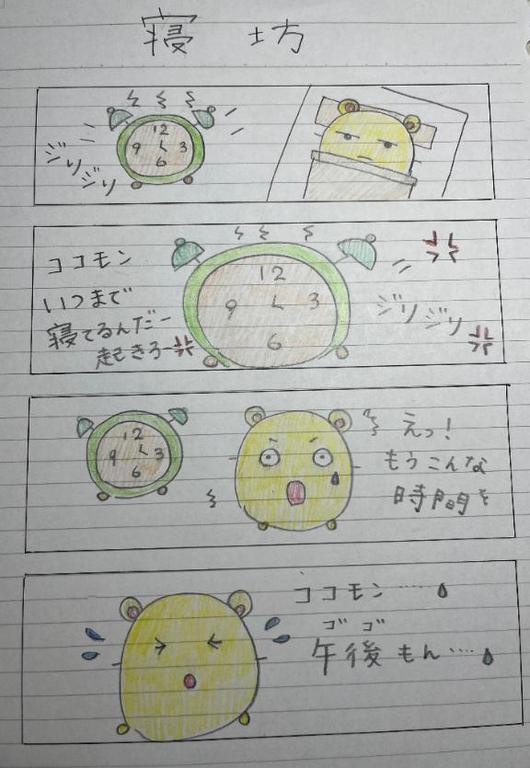 寝坊
12
9 3
6
ジリ
ジリ
ココモン
いつまで
寝てるんだー
起きろー
12
9 3
6
ジリジリ
12
9 3
6
えっ!
もうこんな
時間を
ココモン……
ゴゴ
午後もん……